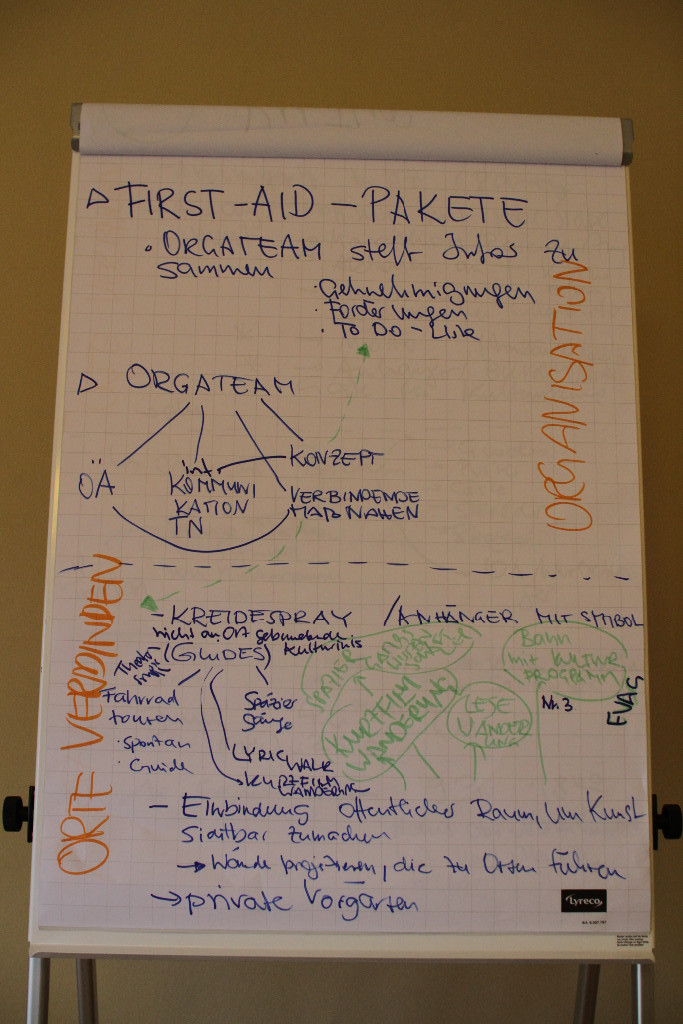 ▷ FIRST-AID-PAKETE
• ORGATEAM stellt Infos zu
sammen
• Genehmigungen
• Förderungen
• To Do-Liste
ORGANISATION
▷ ORGATEAM
ÖA
int.
KOMMUNI
KATION
TN
KONZEPT
VERBINDENDE
MAßNAHMEN
ORTE VERBINDEN
- KREIDESPRAY /ANHÄNGER MIT SYMBOL
nicht an Ort gebundende
Kulturinis
(GUIDES)
Fahrrad
touren
• spontan
• Guide
Spazier
gänge
LYRIC WALK
KURZFILM
WANDERUNG
SPAZIER
GANG
KURZFILM
WANDERUNG
LESE
WANDER
UNG
Bahn
mit KULTUR
PROGRAMM
Nr. 3
EVAG
- Einbindung öffentlicher Raum, um Kunst
sichtbar zumachen
→ Wände projizieren, die zu Orten führen
→ private Vorgärten
Lyreco